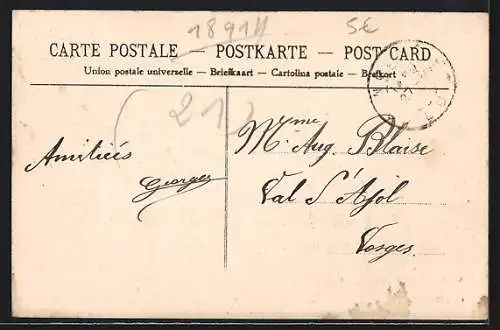 18914
5€
CARTE POSTALE — POSTKARTE — POST CARD
Union postale universelle — Briefkaart — Cartolina postale — Brefkort
213
Amitiés
Georges
Mme Aug. Blaise
Val d'Ajol
Vosges.